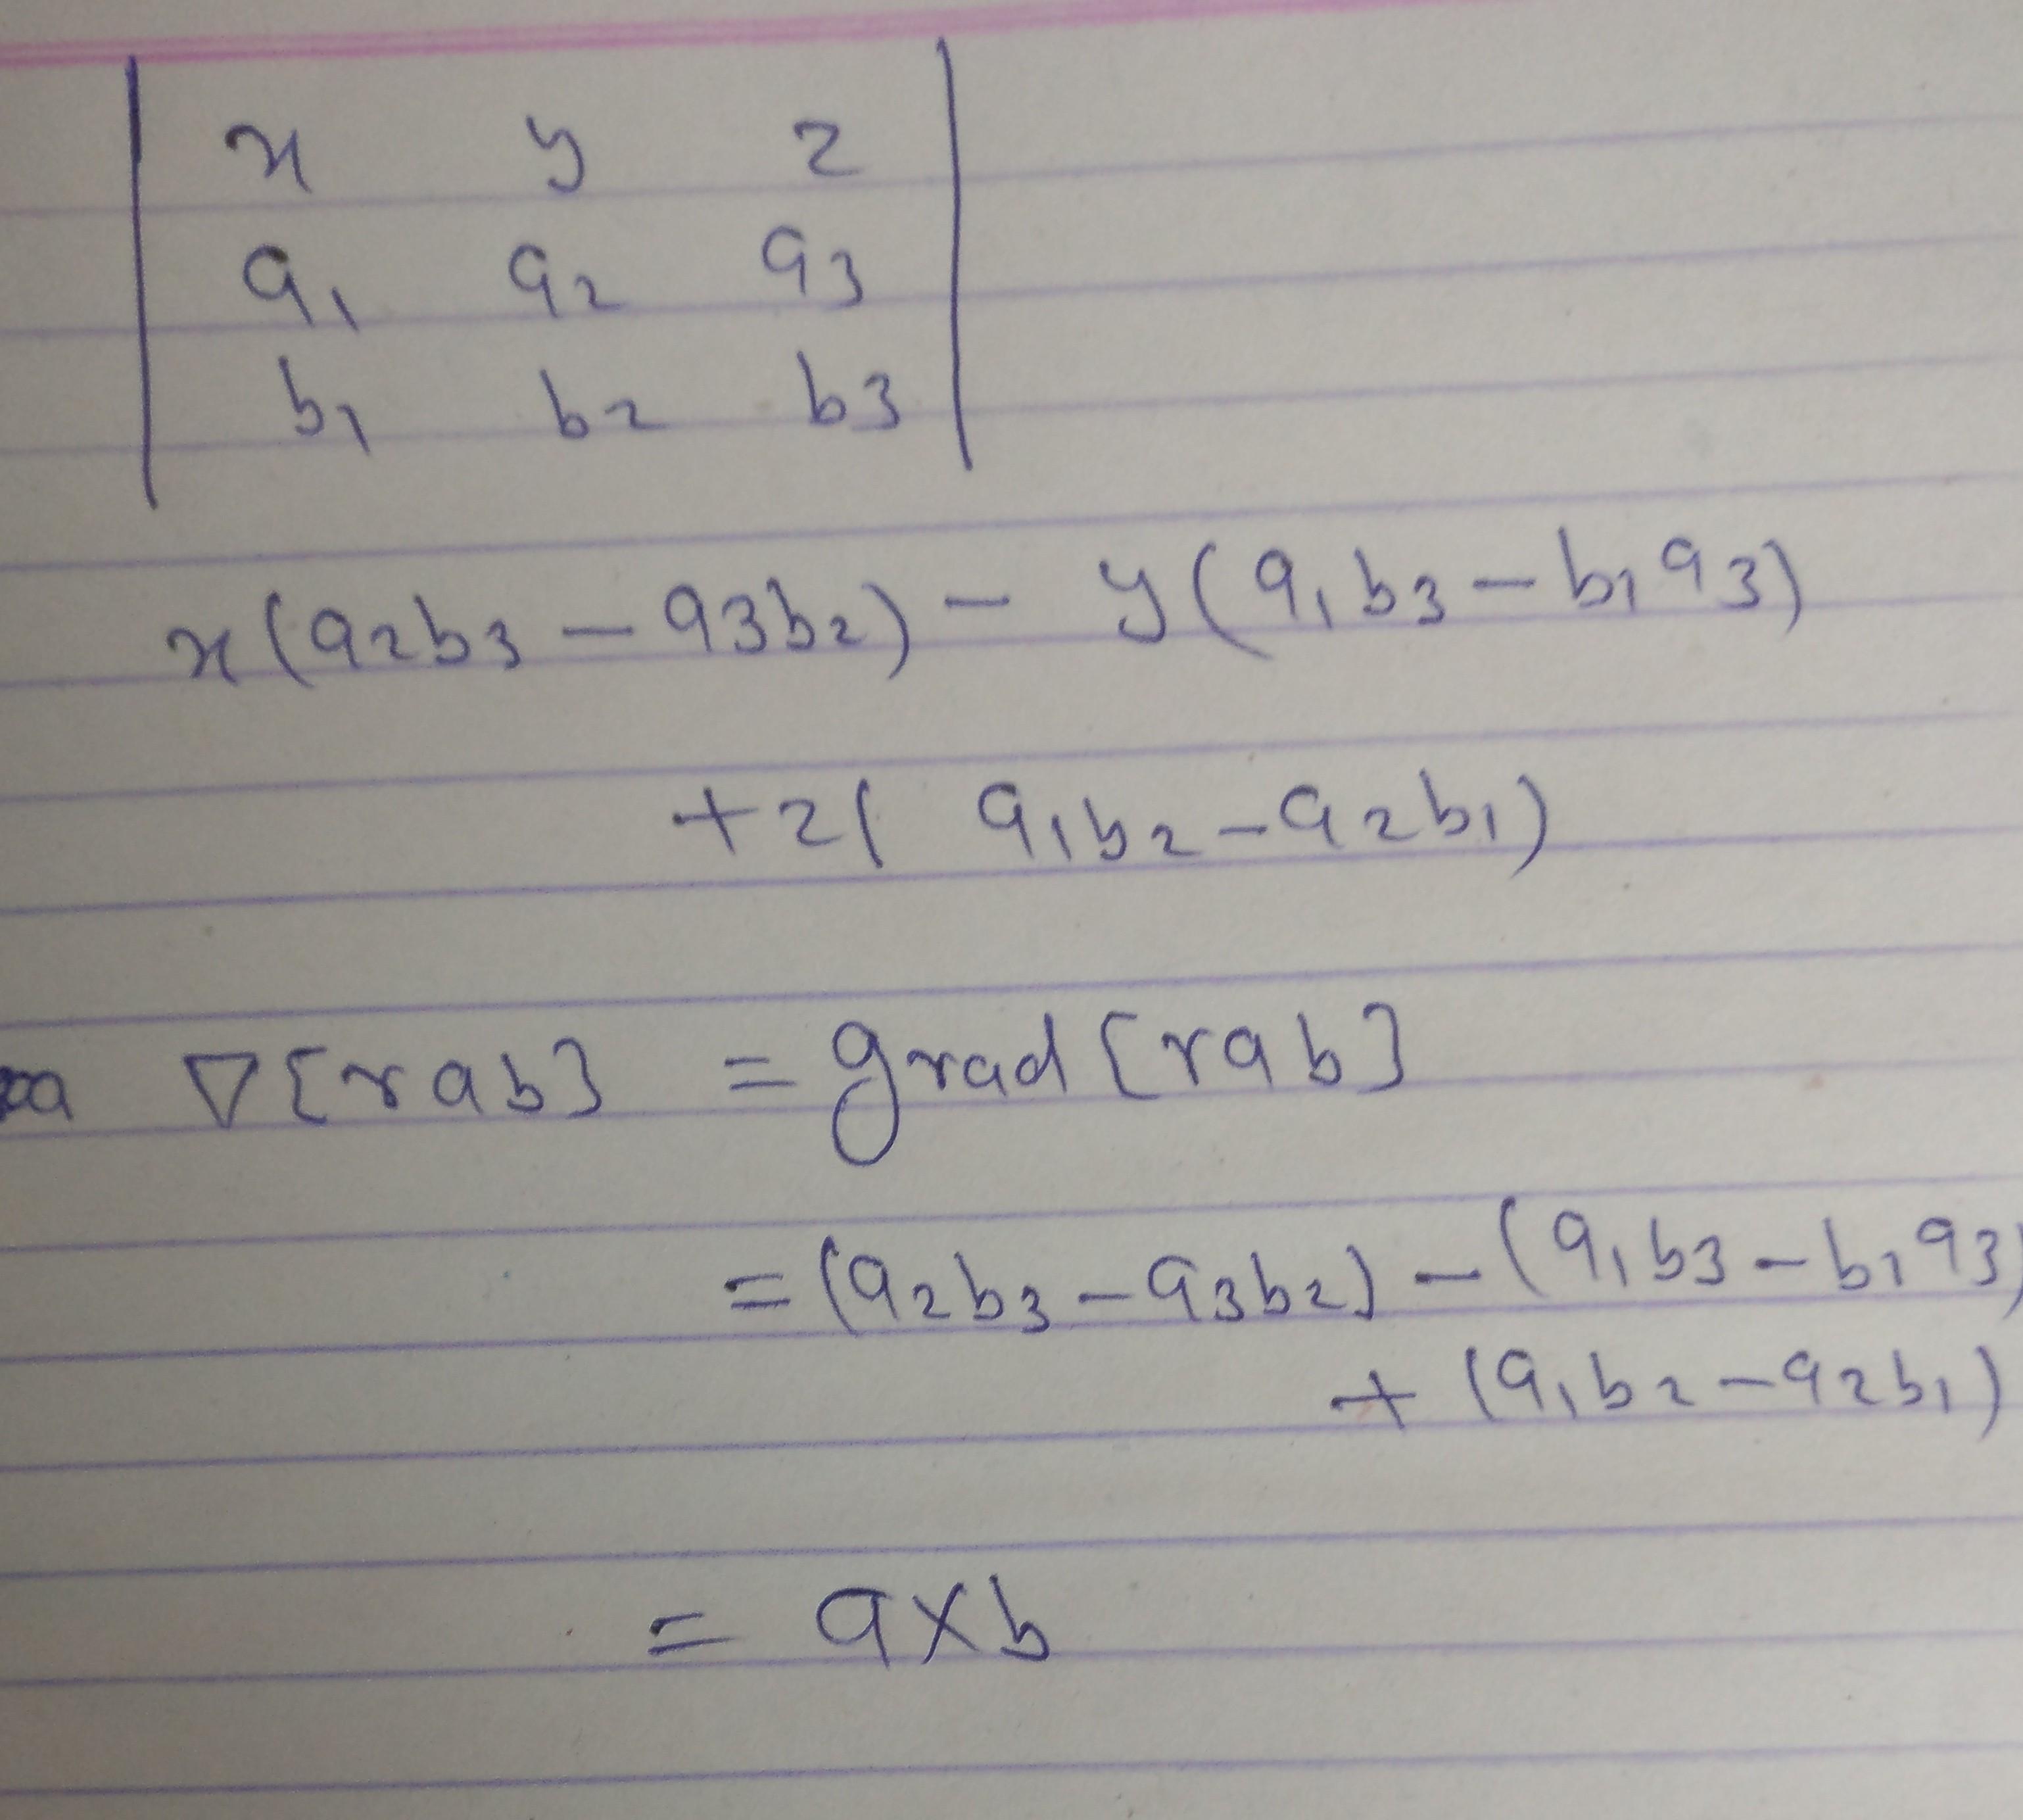 | x y z |
| a1 a2 a3 |
| b1 b2 b3 |
x(a2b3 − a3b2) − y(a1b3 − b1a3)
+z( a1b2 − a2b1)
∇[rab] = grad[rab]
= (a2b3 − a3b2) − (a1b3 − b1a3)
+ (a1b2 − a2b1)
= a×b